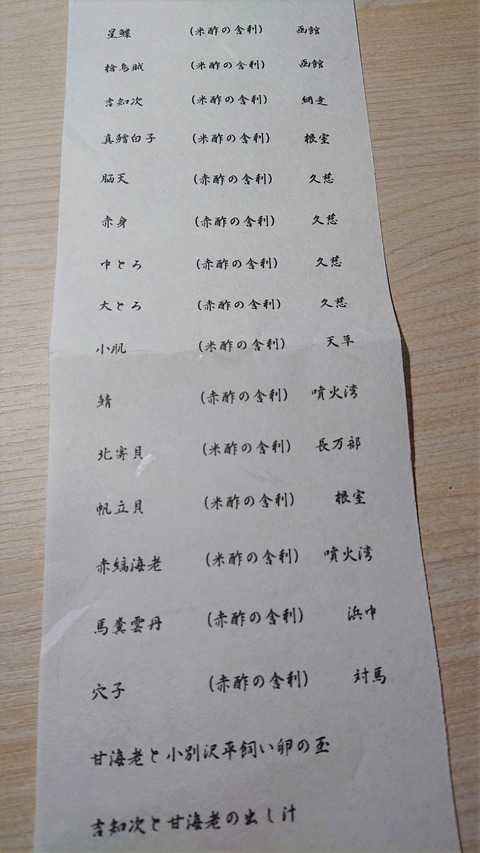 星鰈 (米酢の舎利) 函館
槍烏賊 (米酢の舎利) 函館
吉知次 (米酢の舎利) 網走
真鱈白子 (米酢の舎利) 根室
脳天 (赤酢の舎利) 久慈
赤身 (赤酢の舎利) 久慈
中とろ (赤酢の舎利) 久慈
大とろ (赤酢の舎利) 久慈
小肌 (米酢の舎利) 天草
鯖 (赤酢の舎利) 噴火湾
北寄貝 (米酢の舎利) 長万部
帆立貝 (米酢の舎利) 根室
赤縞海老 (米酢の舎利) 噴火湾
馬糞雲丹 (赤酢の舎利) 浜中
穴子 (赤酢の舎利) 対馬
甘海老と小別沢平飼い卵の玉
吉知次と甘海老の出し汁